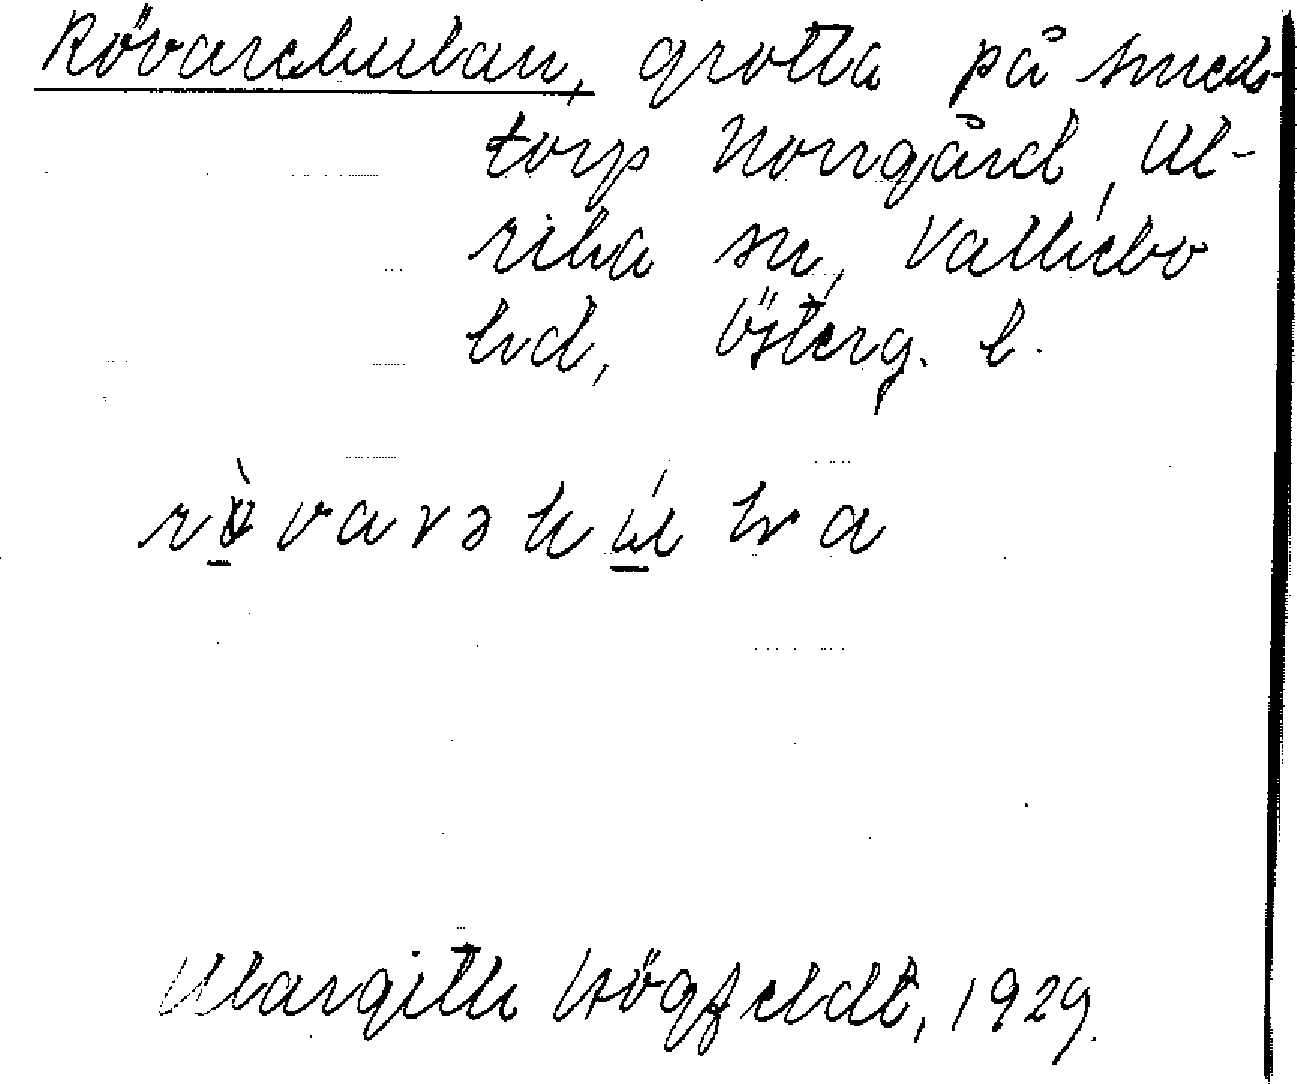 Rövarekulan, grotta på Smeds-
torp Norrgård, Ul-
rika sn, Vallkebo
hd, Österg. l.
rövarəkúla
Margith Högfeldt, 1929.